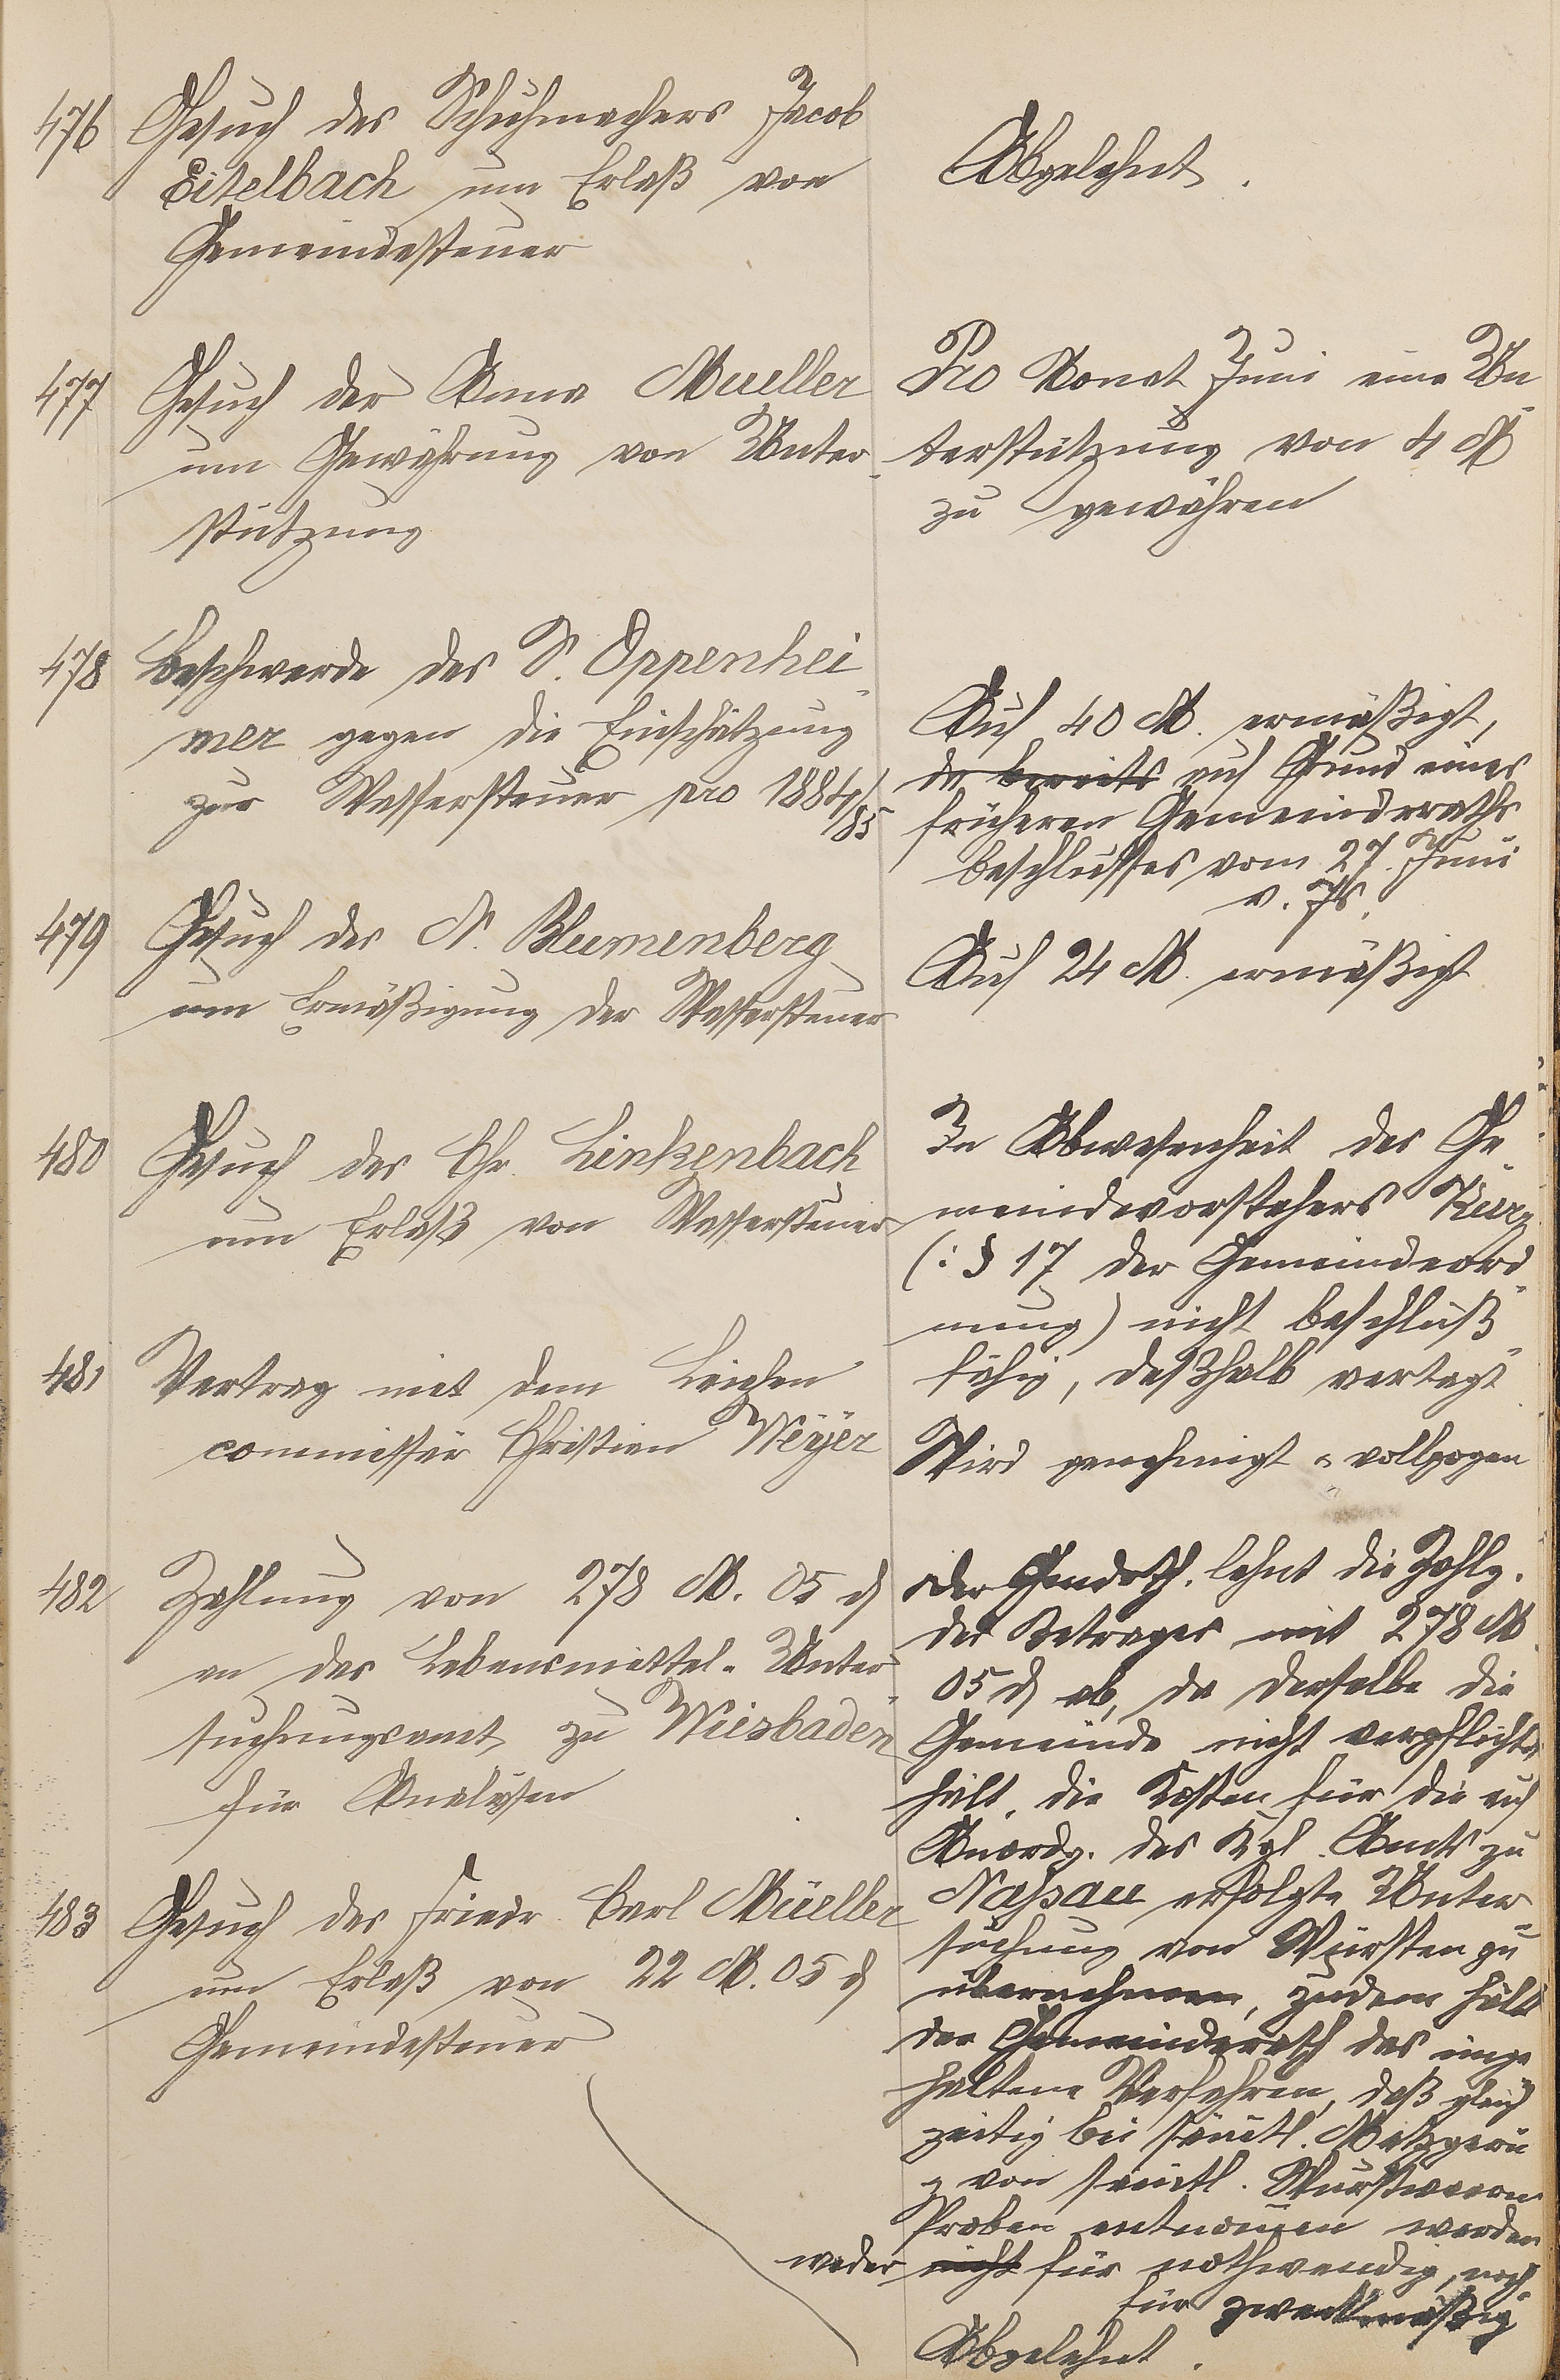 476 Gesuch des Schuhmachers Jacob
Eitelbach um Erlaß von
Gemeindesteuer
Abgelehnt.
477 Gesuch der Anna Mueller
um Gewährung von Unter-
stützung
Pro Monat Juni eine Un-
terstützung von 4 M
zu gewähren
478 Beschwerde des S. Oppenhei-
mer gegen die Einschätzung
zur Wassersteuer pro 1884/85
Auf 40 M. ermäßigt,
da bereits auf Grund eines
früheren Gemeinderaths
beschlusses vom 27. Juni
v. Js.
479 Gesuch des N. Blumenberg
um Ermäßigung der Wassersteuer
Auf 24 M. ermäßigt
480 Gesuch des Chr. Linkenbach
um Erlaß von Wassersteuer
In Abwesenheit des Ge-
meindevorstehers Kurz
(: § 17 der Gemeindeord-
nung) nicht beschluß-
fähig, deßhalb vertagt
481 Vertrag mit dem Leichen
commissär Christian Meÿer
Wird genehmigt u vollzogen
482 Zahlung von 278 M. 05 d
an das Lebensmittel-Unter-
suchungsamt zu Wiesbaden
für Analysen
Der Gmdrth. lehnt die Zahlg.
des Betrages mit 278 M
05 d ab, da derselbe die
Gemeinde nicht verpflichtet
hält, die Kosten für die auf
Anordg. des Kgl. Amts zu
Nassau erfolgte Unter-
suchung von Würsten zu
übernehmen, zudem hält
der Gemeinderath das inge
haltene Verfahren, daß gleich
zeitig bei sämtl. Metzgern
u von sämtl. Wurstwaaren
Proben entnom̄en werden
weder nicht für nothwendig, noch
für zweckmäßig
483 Gesuch des Friedr. Carl Müeller
um Erlaß von 22 M. 05 d
Gemeindesteuer
Abgelehnt.